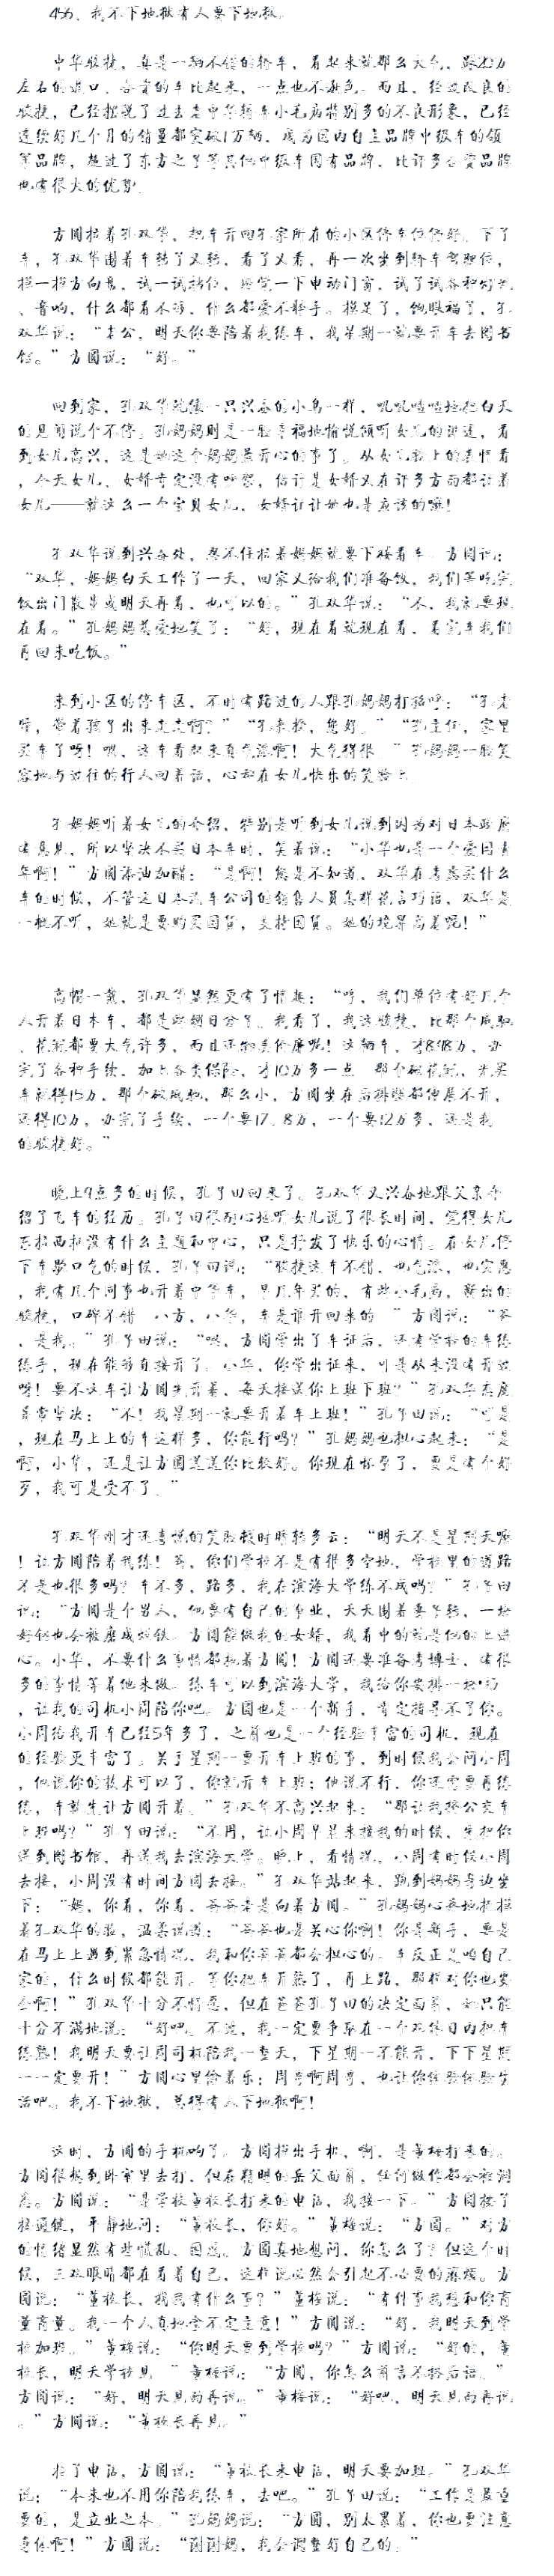 456、我不下地狱有人要下地狱。
中华骏捷，真是一辆不错的轿车，看起来就那么大气，跟20万
左右的进口、合资的车比起来，一点也不逊色。而且，经过改良的
骏捷，已经摆脱了过去老中华轿车小毛病特别多的不良形象，已经
连续好几个月的销量都突破1万辆，成为国内自主品牌中级车的领
军品牌，超过了东方之子等其他中级车国有品牌，比许多合资品牌
也有很大的优势。
方圆拉着孔双华，把车开回孔家所在的小区停车位停好。下了
车，孔双华围着车转了又转，看了又看，再一次坐到轿车驾驶位，
摸一摸方向盘，试一试档位，感觉一下电动门窗，试了试各种灯光
、音响，什么都看不够，什么都爱不释手。摸足了，饱眼福了，孔
双华说：“老公，明天你要陪着我练车，我星期一就要开车去图书
馆。”方圆说：“好。”
回到家，孔双华就像一只兴奋的小鸟一样，叽叽喳喳地把白天
的见闻说个不停。孔妈妈则是一脸幸福地愉悦倾听女儿的讲述，看
到女儿高兴，这是她这个妈妈最开心的事了。从女儿脸上的表情看
，今天女儿、女婿肯定没有吵架，估计是女婿又在许多方面都让着
女儿——就这么一个宝贝女儿，女婿让让她也是应该的嘛！
孔双华说到兴奋处，忍不住拉着妈妈就要下楼看车。方圆说：
“双华，妈妈白天工作了一天，回家又给我们准备饭，我们等吃完
饭出门散步或明天再看，也可以的。”孔双华说：“不，我就要现
在看。”孔妈妈慈爱地笑了：“好，现在看就现在看，看完车我们
再回来吃饭。”
来到小区的停车区，不时有路过的人跟孔妈妈打招呼：“孔老
师，带着孩子出来走走啊？”“孔老师，您好。”“孔主任，家里
买车了呀！嗯，这车看起来真气派啊！大气得很。”孔妈妈一脸笑
容地与过往的行人回着话，心却在女儿快乐的笑脸上。
孔妈妈听着女儿的介绍，特别是听到女儿说到因为对日本政府
有意见，所以坚决不买日本车时，笑着说：“小华也是一个爱国青
年啊！”方圆添油加醋：“是啊！您是不知道，双华在考虑买什么
车的时候，不管这日本汽车公司的销售人员怎样花言巧语，双华是
一概不听，她就是要购买国货，支持国货。她的境界高着呢！”
高帽一戴，孔双华显然更有了情趣：“哼，我们单位有好几个
人开着日本车，都是政绩日分子。我看了，我这骏捷，比那个威驰
、花冠都要大气许多，而且还物美价廉呢！这辆车，才8.98万，办
完了各种手续，加上各类保险，才10万多一点。那个破花冠，光买
车就得15万，那个破威驰，那么小，方圆坐在后排腿都伸展不开，
还得10万，办完了手续，一个要17、8万，一个要12万多，还是我
的骏捷好。”
晚上9点多的时候，孔子田回来了。孔双华又兴奋地跟父亲介
绍了飞车的经历。孔子田很耐心地听女儿说了很长时间，觉得女儿
东拉西扯没有什么主题和中心，只是抒发了快乐的心情。在女儿停
下车歇口气的时候，孔子田说：“骏捷这车不错，也气派，也实惠
，我有几个同事也开着中华车，早几年买的，有些小毛病，新出的
骏捷，口碑不错。小方，小华，车是谁开回来的？”方圆说：“爸
，是我。”孔子田说：“嗯，方圆学出了车证后，还有学校的车练
练手，现在能够直接开了。小华，你学出证来，可是从来没有开过
呀！要不这车让方圆先开着，每天接送你上班下班？”孔双华态度
异常坚决：“不！我星期一就要开着车上班！”孔子田说：“可是
，现在马路上的车这样多，你能行吗？”孔妈妈也担心起来：“是
啊，小华，还是让方圆送送你比较好。你现在怀孕了，要是有个好
歹，我可是受不了。”
孔双华刚才还喜悦的笑脸顿时晴转多云：“明天不是星期天嘛
！让方圆陪着我练！爸，你们学校不是有很多空地，学校里的道路
不是也很多吗？车不多，路多，我在滨海大学练不成吗？”孔子田
说：“方圆是个男人，他要有自己的事业，天天围着妻子转，一块
好钢也会被磨成烂铁。方圆能做我的女婿，我看中的就是他的上进
心。小华，不要什么事情都拉着方圆！方圆还要准备考博士，有很
多的事情等着他来做。练车可以到滨海大学，我给你安排一块场
，让我的司机小周陪你吧。方圆也是一个新手，肯定指导不了你。
小周给我开车已经5年多了，之前也是一个经验丰富的司机，现在
的经验更丰富了。关于星期一要开车上班的事，到时候我会问小周
，他说你的技术可以了，你就开车上班；他说不行，你还需要再练
练，车就先让方圆开着。”孔双华不高兴起来：“那让我挤公交车
上班吗？”孔子田说：“不用，让小周早晨来接我的时候，先把你
送到图书馆，再送我去滨海大学。晚上，看情况，小周有时候小周
去接，小周没有时间方圆去接。”孔双华站起来，跑到妈妈身边坐
下：“妈，你看，你看，爸爸老是向着方圆。”孔妈妈心疼地抚摸
着孔双华的脸，温柔说道：“爸爸也是关心你啊！你是新手，要是
在马路上遇到紧急情况，我和你爸爸都会担心的。车反正是咱自己
家的，什么时候都能开。等你把车开熟了，再上路，那样对你也安
全啊！”孔双华十分不情愿，但在爸爸孔子田的决定面前，她只能
十分不满地说：“好吧。不过，我一定要争取在一个双休日内把车
练熟！我明天要让周司机陪我一整天，下星期一不能开，下下星期
一一定要开！”方圆心里偷着乐：周亨啊周亨，也让你经验经验生
活吧。我不下地狱，总得有人下地狱啊！
这时，方圆的手机响了。方圆摸出手机，啊，是董梅打来的。
方圆很想到卧室里去打，但在精明的岳父面前，任何做作都会被洞
悉。方圆说：“是学校董校长打来的电话，我接一下。”方圆按了
接通键，平静地问：“董校长，你好。”董梅说：“方圆。”对方
的情绪显然有些慌乱、困惑。方圆真地想问，你怎么了？但这个时
候，三双眼睛都在看着自己，这样说必然会引起不必要的麻烦。方
圆说：“董校长，找我有什么事？”董梅说：“有件事我想和你商
量商量。我一个人真地拿不定主意！”方圆说：“好，我明天到学
校加班。”董梅说：“你明天要到学校吗？”方圆说：“好的，董
校长，明天学校见。”董梅说：“方圆，你怎么前言不搭后语。”
方圆说：“好，明天见面再说。”董梅说：“好吧，明天见面再说
。”方圆说：“董校长再见。”
挂了电话，方圆说：“董校长来电话，明天要加班。”孔双华
说：“本来也不用你陪我练车，去吧。”孔子田说：“工作是最重
要的，是立业之本。”孔妈妈说：“方圆，别太累着，你也要注意
身体啊！”方圆说：“谢谢妈，我会调整好自己的。”